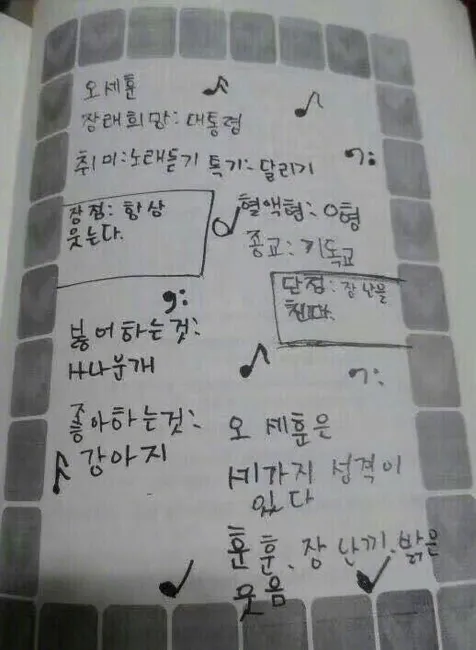 오세훈
장래희망: 대통령
취미: 노래듣기 특기: 달리기
장점: 항상
웃는다.
혈액형: O형
종교: 기독교
단점: 장난을
친다.
싫어하는것:
번개
좋아하는것:
강아지
오 세훈은
세가지 성격이
있다
훈훈, 장난끼, 밝은
웃음